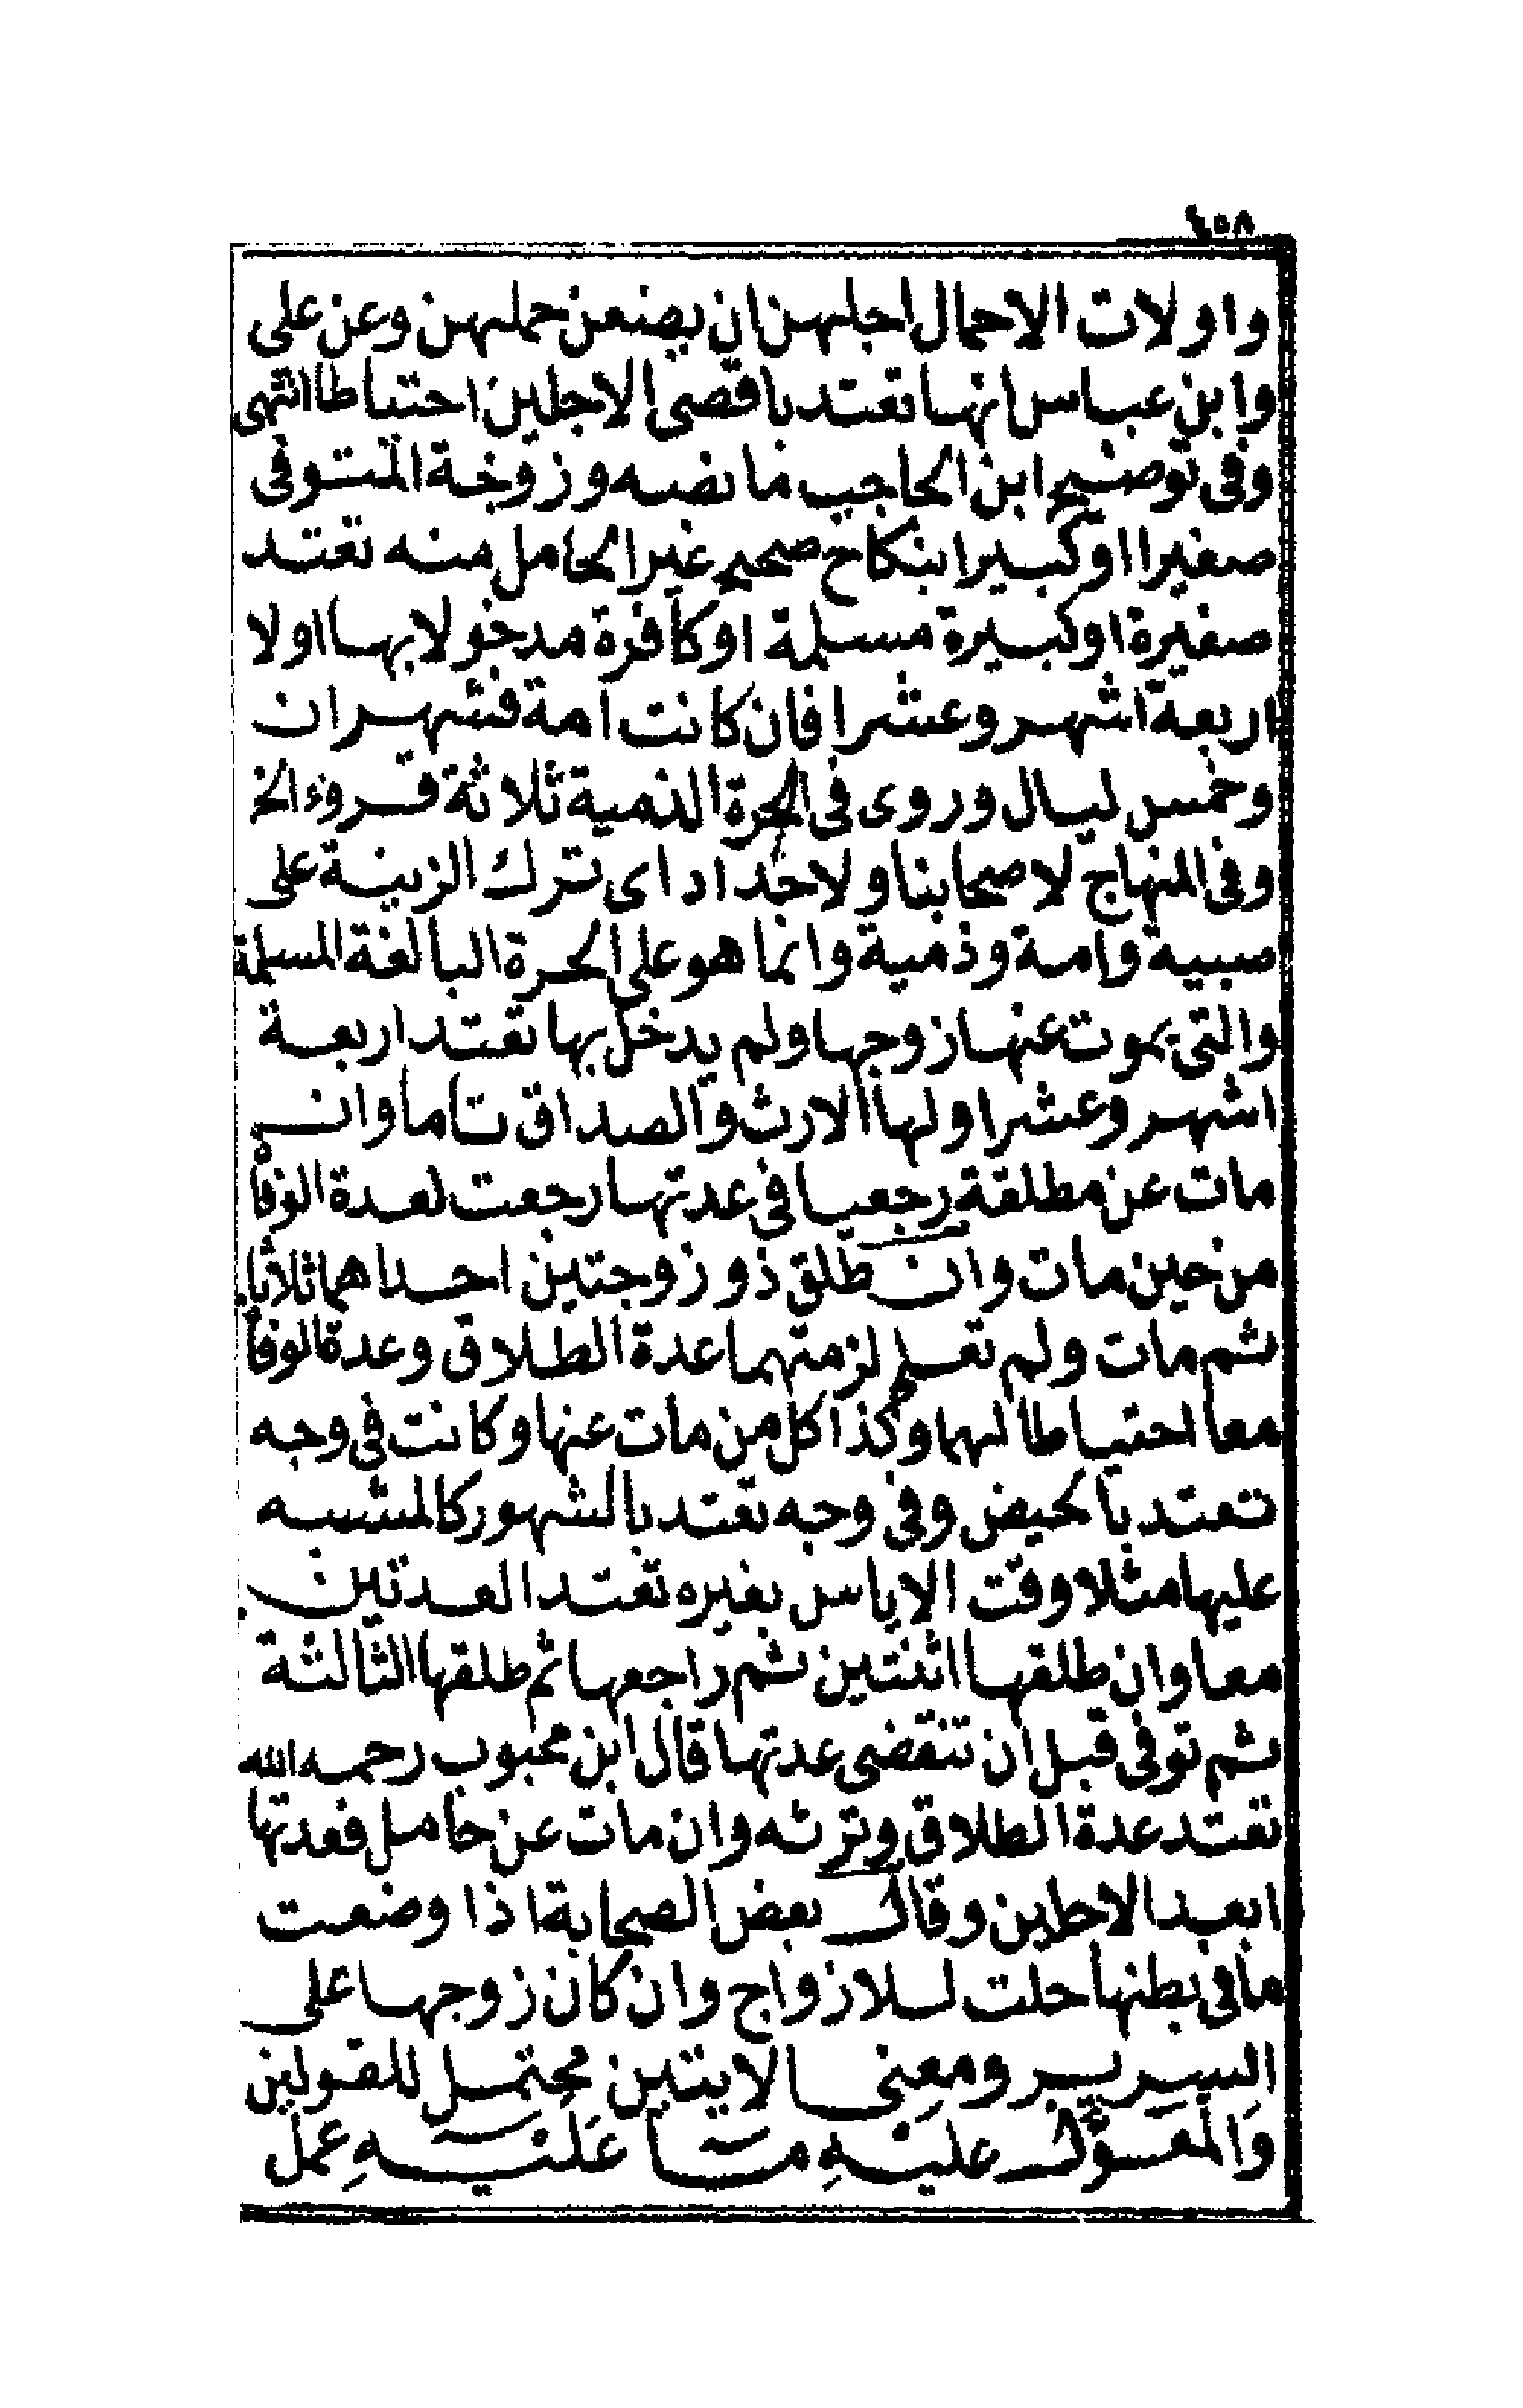 ٤٥٨
واولات الاحمال اجلهن ان يضعن حملهن وعن على
وابن عباس انها تعتد باقصى الاجلين احتياطا انتهى
وفى توضيح ابن الحاجب ما نصه وزوجة المتوفى
صغيرا اوكبيرا بنكاح صحيح غير الحامل منه تعتد
صغيرة اوكبيرة مسلمة اوكافرة مدخولا بها اولا
اربعة اشهر وعشرا فان كانت امة فشهران
وخمس ليال وروى فى الحرة الذمية ثلاثة قروء الخ
وفى المنهاج لاصحابنا ولا حداد اى ترك الزينة على
صبية وامة وذمية وانما هو على الحرة البالغة المسلمة
والتى يموت عنها زوجها ولم يدخل بها تعتد اربعة
اشهر وعشرا ولها الارث والصداق تاما وان
مات عن مطلقة رجعيا فى عدتها رجعت لعدة الوفاة
من حين مات وان طلق ذو زوجتين احداهما ثلاثا
ثم مات ولم تعلم لزمتهما عدة الطلاق وعدة الوفاة
معا احتياطا لهما وكذا كل من مات عنها وكانت فى وجه
تعتد بالحيض وفى وجه تعتد بالشهور كالمشبه
عليها مثلا وقت الاياس بغيره تعتد العدتين
معا وان طلقها اثنتين ثم راجعها ثم طلقها الثالثة
ثم توفى قبل ان تنقضى عدتها قال ابن محبوب رحمه الله
تعتد عدة الطلاق وترثه وان مات عن حامل فعدتها
ابعد الاجلين وقال بعض الصحابة اذا وضعت
ما فى بطنها حلت للازواج وان كان زوجها على
السرير ومعنى الايتين محتمل للقولين
والمعول عليه ما عليه عمل